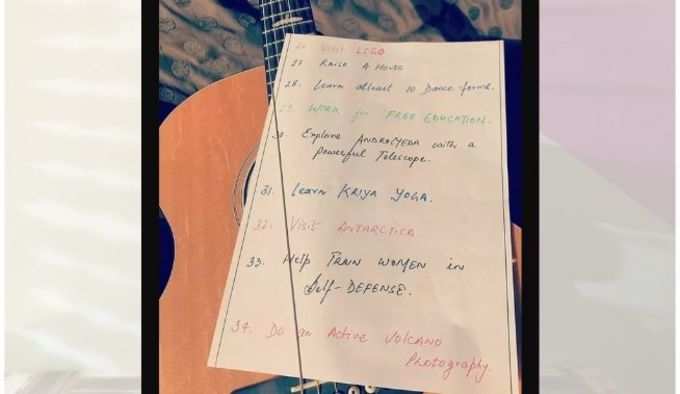 Visit LIGO
27. RAISE A HORSE
28. Learn atleast 10 Dance forms.
29. WORK for FREE EDUCATION.
30. Explore ANDROMEDA with a
powerful Telescope.
31. Learn KRIYA YOGA.
32. VISIT ANTARCTICA
33. Help TRAIN WOMEN in
Self-DEFENSE.
34. DO an Active VOLCANO
Photography.